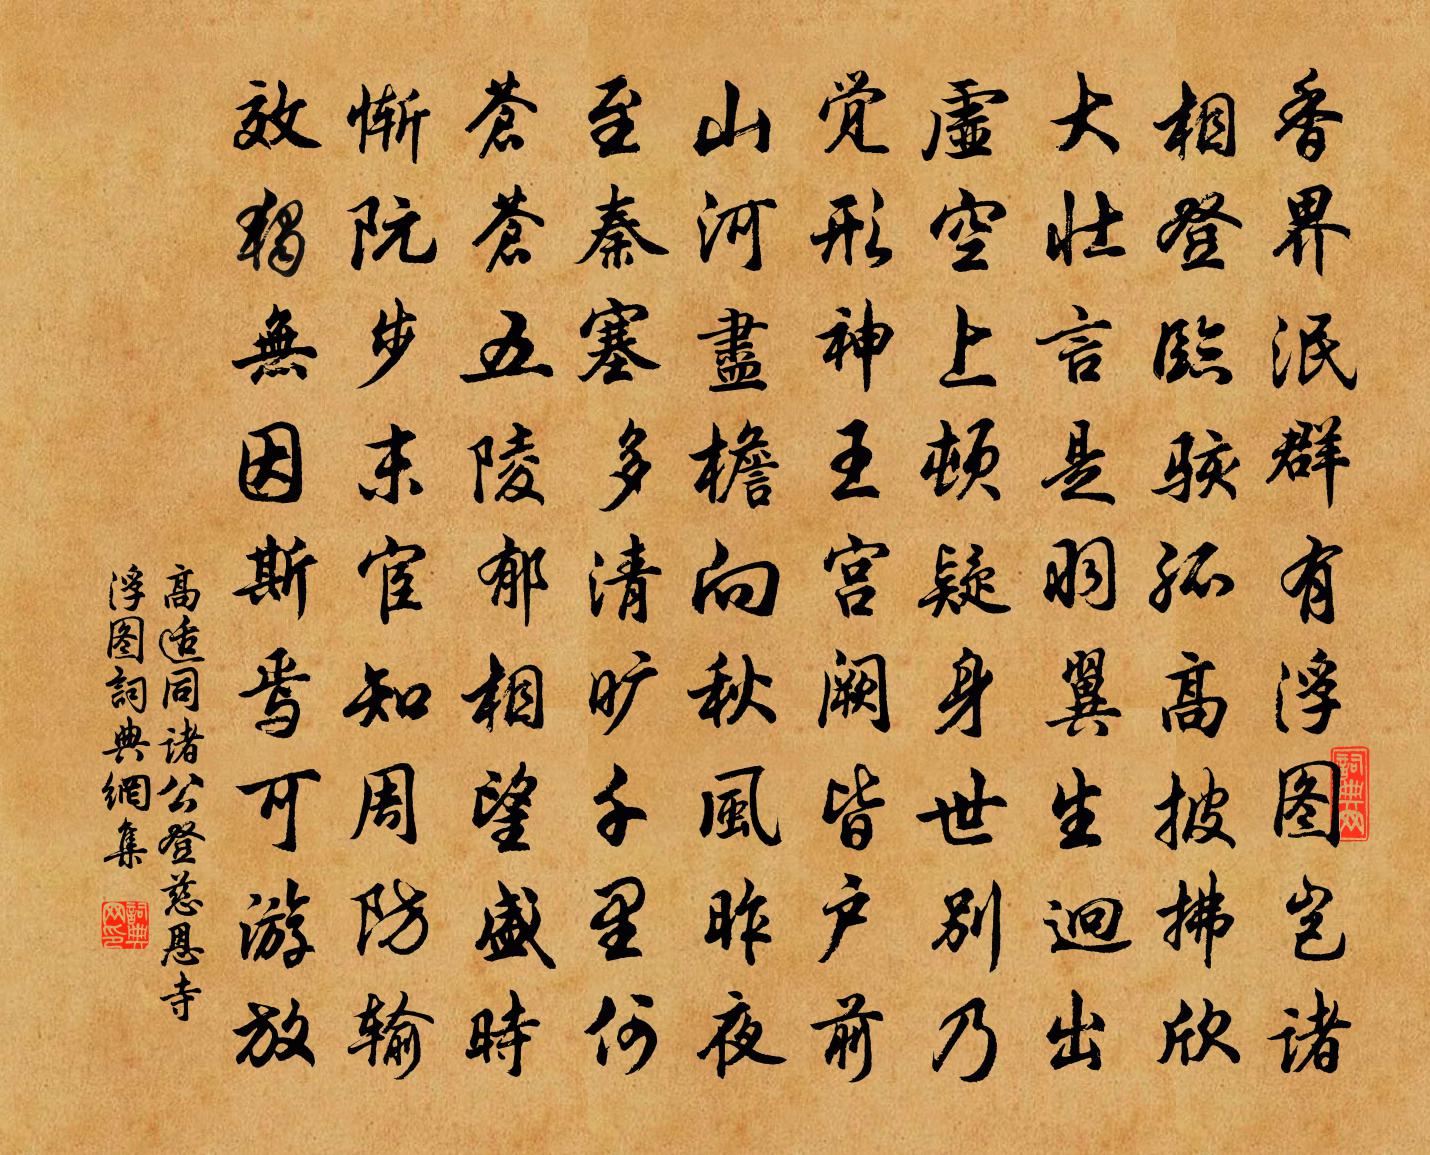 香界泯群有浮图岂诸
相登臨骇孤高披拂欣
大壮言是羽翼生迥出
虚空上頓疑身世别乃
觉形神王宫阙皆户前
山河盡檐向秋風昨夜
至秦塞多清旷千里何
蒼蒼五陵郁相望盛時
慚阮步末宦知周防输
效獨無因斯焉可游放
高适同诸公登慈恩寺
浮图詞典網集
詞典网
詞典网印